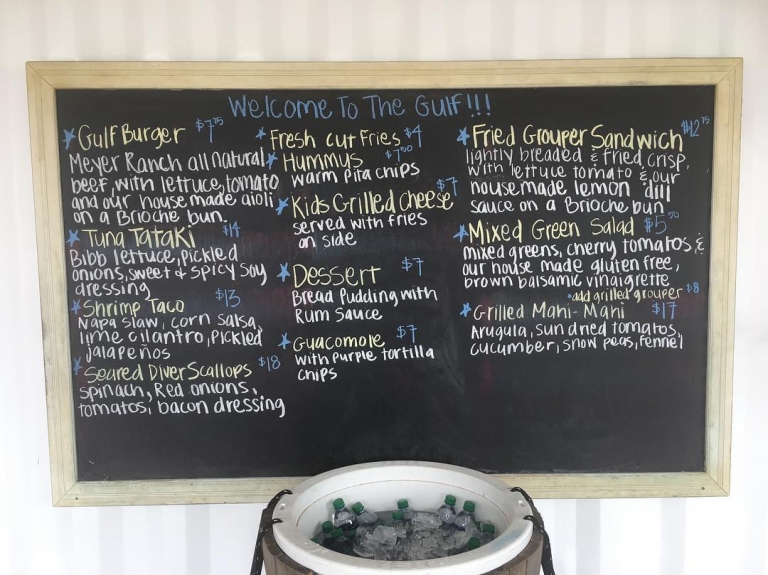 Welcome To The Gulf!!!
Gulf Burger $7.75
Meyer Ranch all natural
beef, with lettuce, tomato
and our house made aioli
on a Brioche bun.
Tuna Tataki $14
Bibb lettuce, pickled
onions, sweet & spicy soy
dressing
Shrimp Taco $13
Napa slaw, corn salsa,
lime cilantro, pickled
jalapeños
Seared Diver Scallops $18
spinach, Red onions,
tomatos, bacon dressing
Fresh Cut Fries $4
Hummus $7.50
warm pita chips
Kids Grilled Cheese $7
served with fries
on side
Dessert $7
Bread Pudding with
Rum Sauce
Guacomole $7
with purple tortilla
chips
Fried Grouper Sandwich $12.75
lightly breaded & fried crisp,
with lettuce tomato & our
house made lemon dill
sauce on a Brioche bun
Mixed Green Salad $5.50
mixed greens, cherry tomatos &
our house made gluten free,
brown balsamic vinaigrette
•add grilled grouper $8
Grilled Mahi-Mahi $17
Arugula, sun dried tomatos,
cucumber, snow peas, fennel